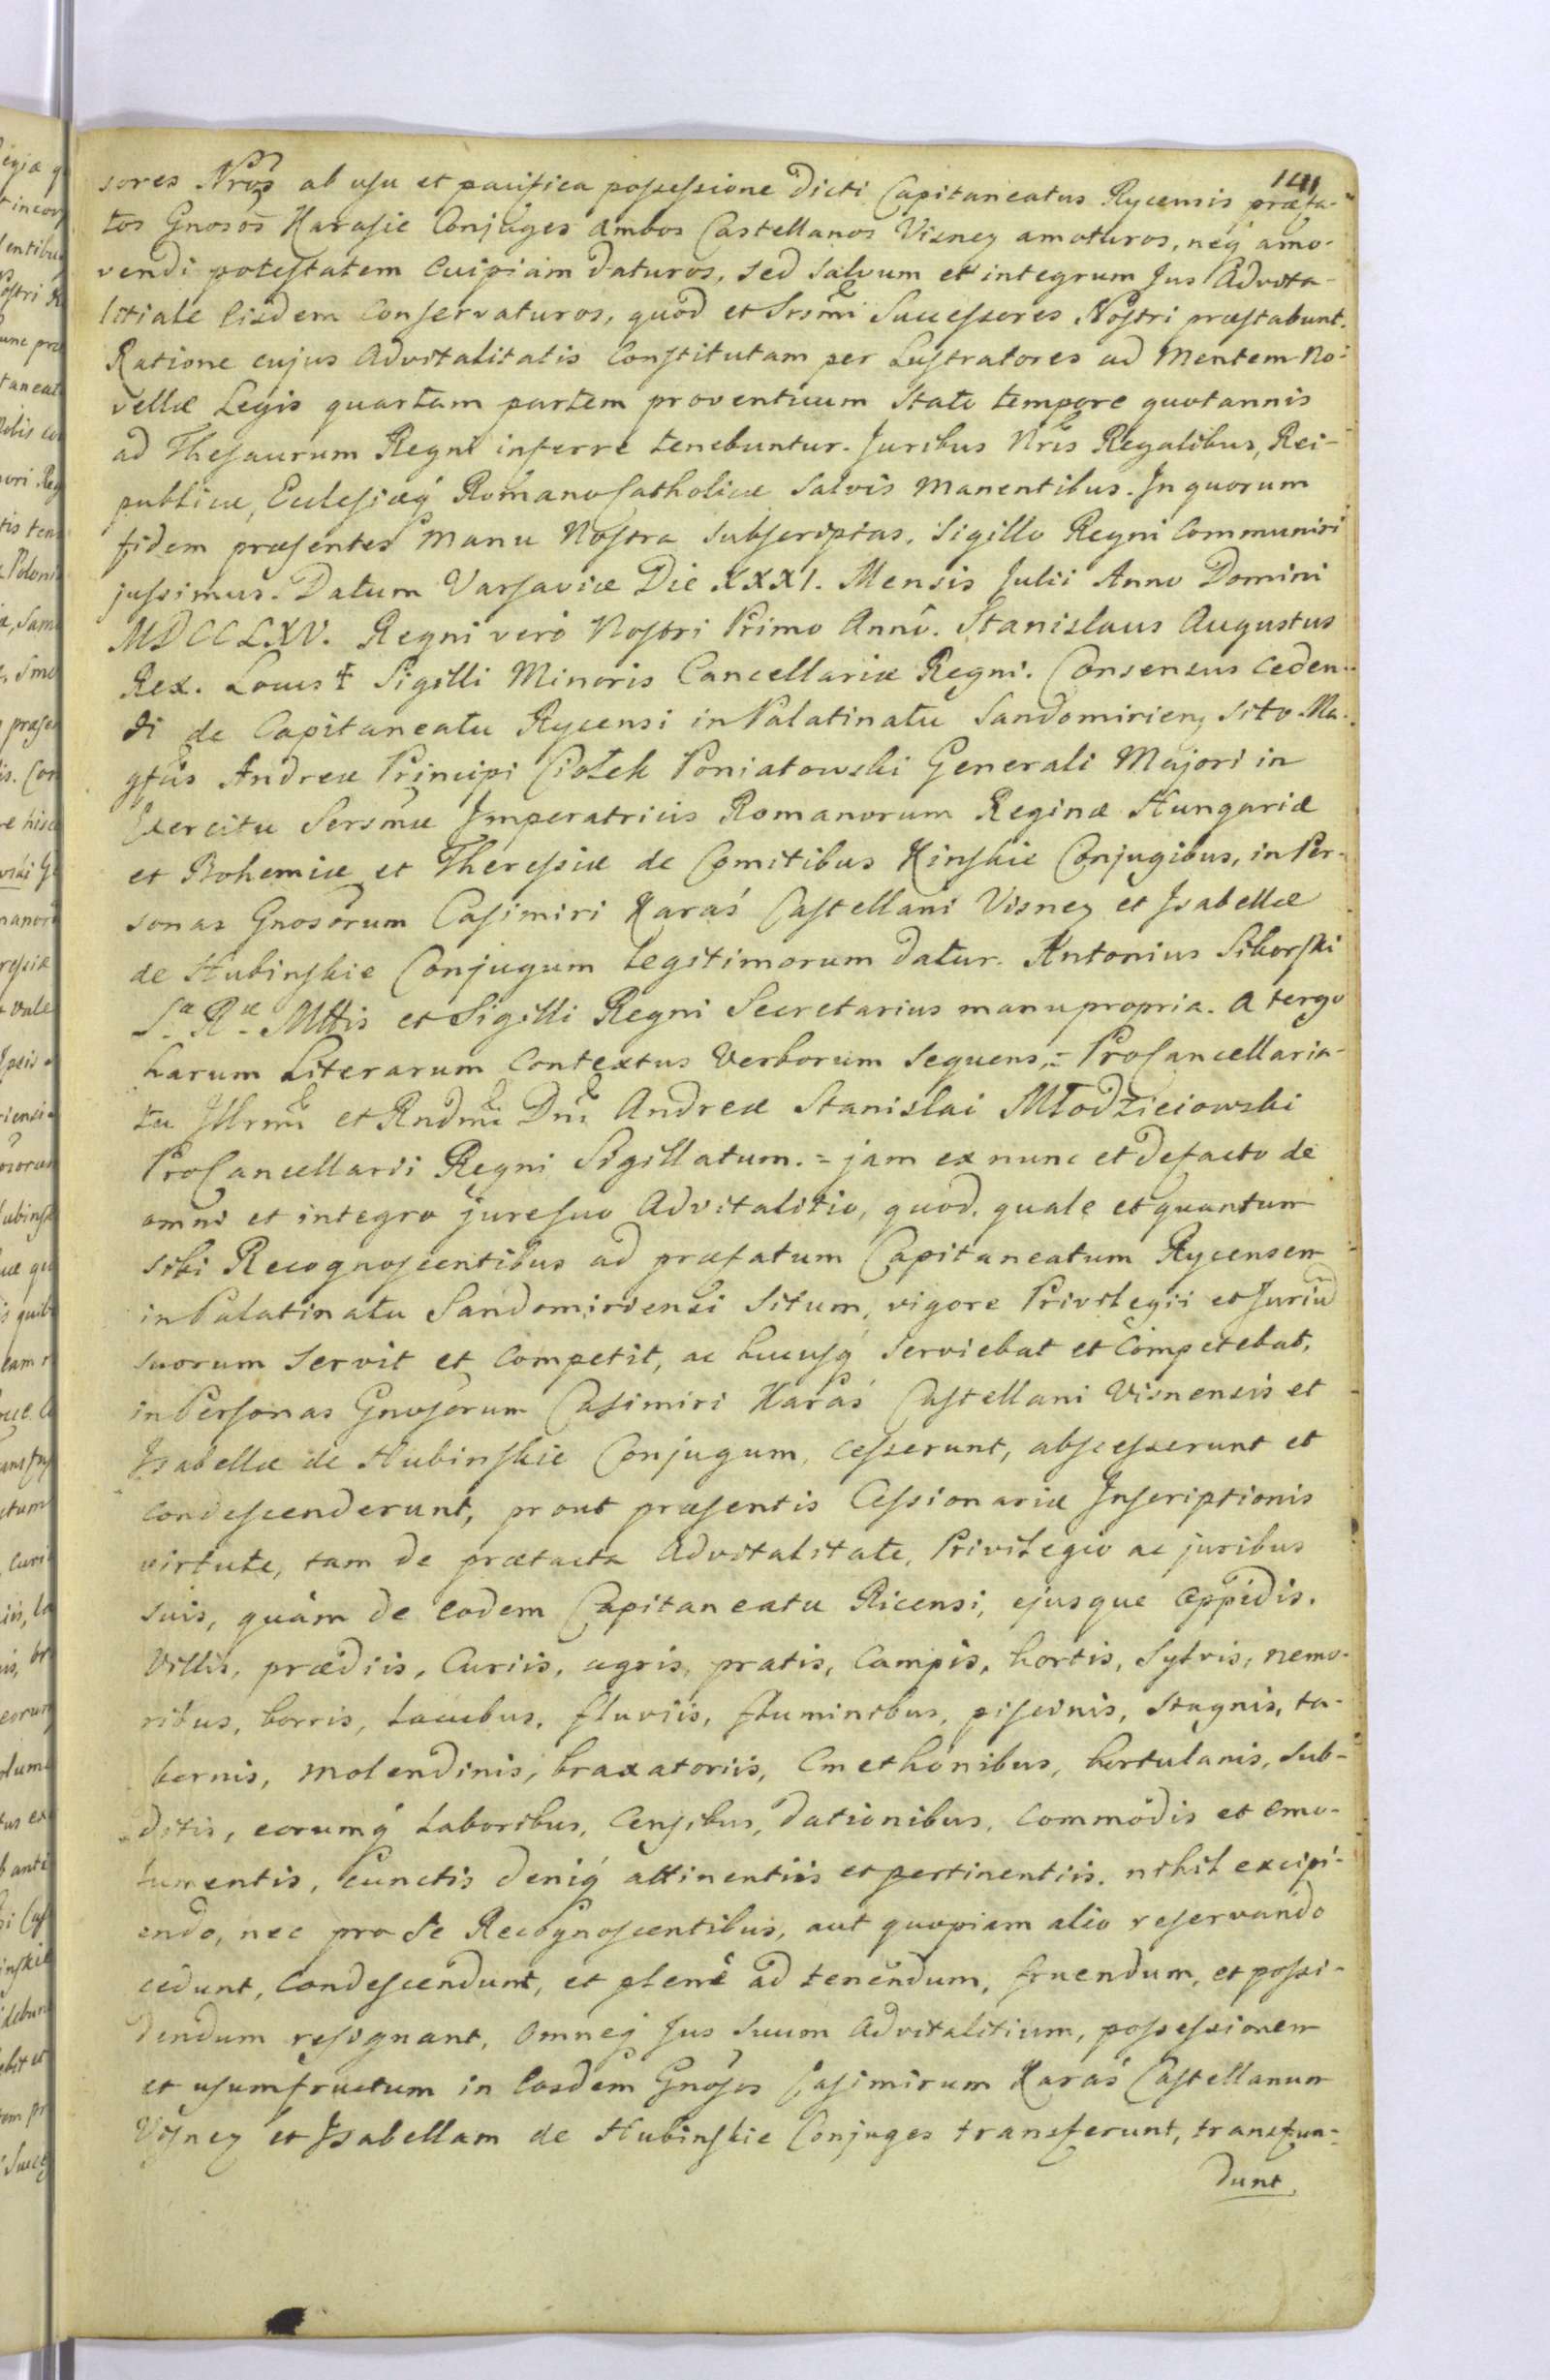 141
sores Nros ab usu et pacifica possessione dicti Capitaneatus Rycensis præfa-
tos Gnosos Karasie Conjuges ambos Castellanos Visney amoturos, neq́ amo-
vendi potestatem cuipiam daturos, sed salvum et integrum Jus Advita-
litiale Eisdem conservaturos, quod et Srsmi Successores Nostri præstabunt.
Ratione cujus Advitalitatis Constitutam per Lustratores ad mentem No-
vellæ Legis quartam partem proventuum Stato tempore quotannis
ad Thesaurum Regni inferre tenebuntur. Juribus Nris Regalibus, Rei-
publicæ, Ecclesiæq́ Romano Catholicæ salvis manentibus. In quorum
fidem præsentes manu Nostra subscriptas, Sigillo Regni communiri
jussimus. Datum Varsaviæ Die XXXI. Mensis Julii Anno Domini
MDCCLXV. Regni verò Nostri Primo Anno. Stanislaus Augustus
Rex. Locus ‡ Sigilli Minoris Cancellariæ Regni. Consensus ceden-
di de Capitaneatu Rycensi in Palatinatu Sandomirien, sito Ma-
gfcis Andreæ Principi Ciołek Poniatowski Generali Majori in
Exercitu Sersmæ Imperatricis Romanorum Reginæ Hungariæ
et Bohemiæ et Theresiæ de Comitibus Kinskie Conjugibus, in Per-
sonas Gnosorum Casimiri Karaś Castellani Visney et Isabellæ
de Hubinskie Conjugum legitimorum datur. Antonius Sikorski
Sæ Ræ Mttis et Sigilli Regni Secretarius manu propria. A tergo
harum Literarum contextus verborum sequens,= ProCancellaria-
tu Illrmi et Rndmi Dni Andreæ Stanislai Młodzieiowski
ProCancellarii Regni Sigillatum.= jam ex nunc et defacto de
omni et integro jure suo Advitalitio, quod, quale et quantum
sibi Recognoscentibus ad præfatum Capitaneatum Rycensem
in Palatinatu Sandomiriensi situm, vigore Privilegii et Jurium
suorum servit et competit, ac hucusq́ serviebat et competebat,
in Personas Gnosorum Casimiri Karaś Castellani Visnensis et
Isabellæ de Hubinskie Conjugum, cesserunt, abscesserunt et
condescenderunt, prout præsentis Cessionariæ Inscriptionis
virtute, tam de prætacta Advitalitate, Privilegio ac juribus
suis, quàm de eodem Capitaneatu Ricensi, ejusque oppidis,
villis, prædiis, curiis, agris, pratis, campis, hortis, sylvis, nemo-
ribus, borris, lacubus, fluviis, fluminibus, piscinis, stagnis, ta-
bernis, molendinis, braxatoriis, Cmethonibus, hortulanis, sub-
ditis, eorumq́ laboribus, censibus, dationibus, commodis et emo-
lumentis, cunctis deniq́ attinentiis et pertinentiis, nihil excipi-
endo, nec pro se Recognoscentibus, aut quopiam alio reservando
cedunt, condescendunt, et plenè ad tenendum, fruendum, et possi-
dendum resignant, omneq́ Jus suum Advitalitium, possessionem
et usumfructum in Eosdem Gnosos Casimirum Karaś Castellanum
Visney et Isabellam de Hubinskie Conjuges transferunt, transfun-
dunt